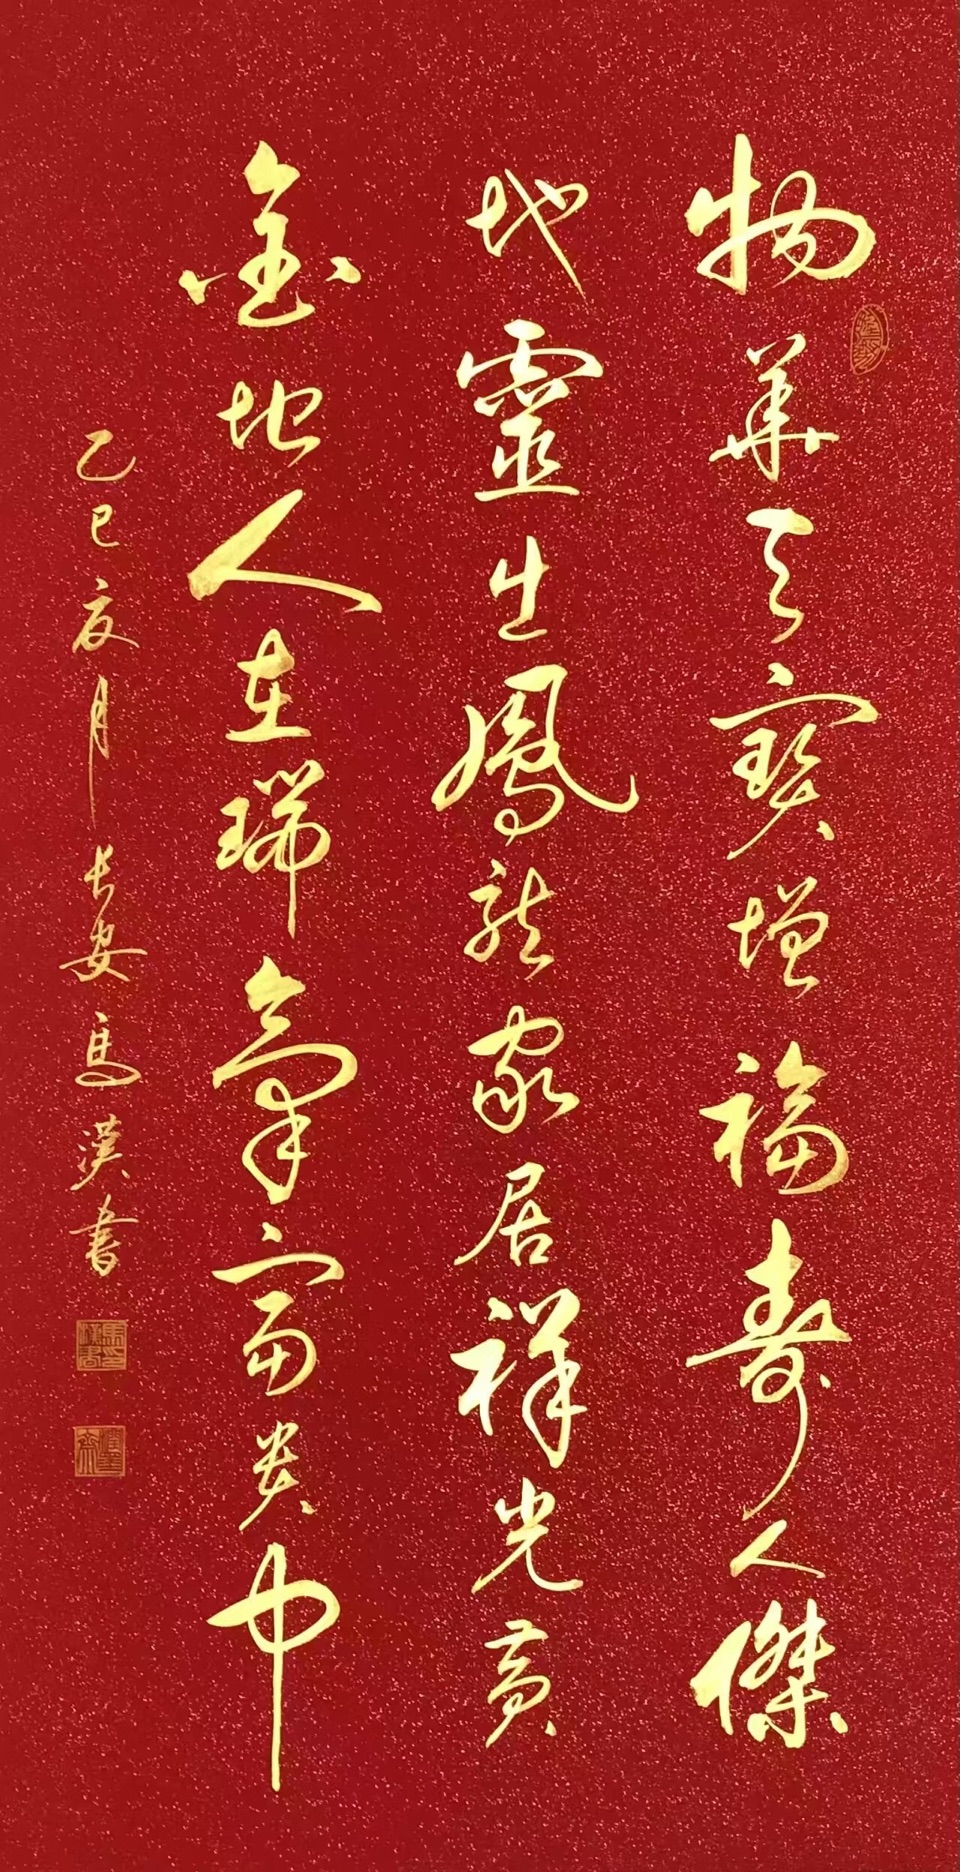 物華天寶增福壽人傑
地靈生鳳龍家居祥光黃
金地人在瑞氣富貴中
乙巳亥月長安馬漢書